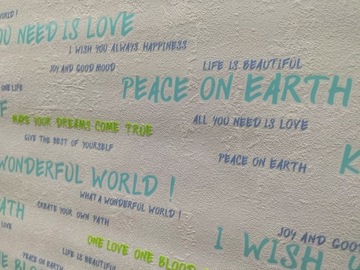 WORLD!
OU NEED IS LOVE
I WISH YOU ALWAYS HAPPINESS
LIFE IS BEAUTIFUL
JOY AND GOOD MOOD
PEACE ON EARTH
ONE LIFE
F
MAKE YOUR DREAMS COME TRUE
ALL YOU NEED IS LOVE
GIVE THE BEST OF YOURSELF
PEACE ON EARTH
K
WONDERFUL WORLD !
WHAT A WONDERFUL WORLD !
ATH
CREATE YOUR OWN PATH
LOVE
JOY AND GOO
I WISH
ONE LOVE ONE BLOOD
LIFE IS BEAUTIFUL
PEACE ON EARTH
E BLO